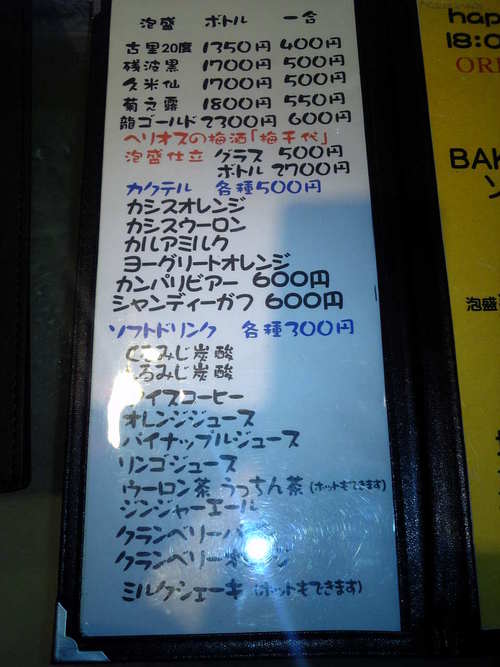 泡盛 ボトル 一合
古里20度 1350円 400円
残波黒 1700円 500円
久米仙 1700円 500円
菊之露 1800円 550円
龍ゴールド 2300円 600円
ヘリオスの梅酒「梅千代」
泡盛仕立 グラス 500円
ボトル 2700円
カクテル 各種500円
カシスオレンジ
カシスウーロン
カルアミルク
ヨーグリートオレンジ
カンパリビアー 600円
シャンディーガフ 600円
ソフトドリンク 各種300円
ぐるみじ炭酸
しるみじ炭酸
アイスコーヒー
オレンジジュース
パイナップルジュース
リンゴジュース
ウーロン茶 うっちん茶 (ホットもできます)
ジンジャーエール
クランベリー
クランベリーオ
ミルクシェーキ (ホットもできます)
hap
18:0
OR
BAK
ン
泡盛